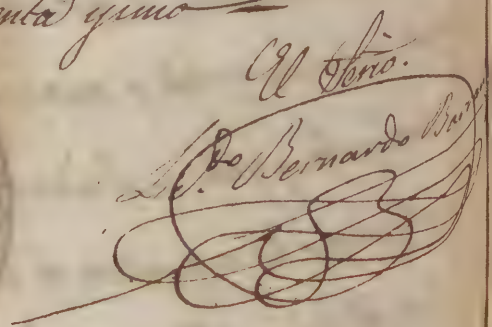 enta y uno
El Serio.
L.do Bernardo